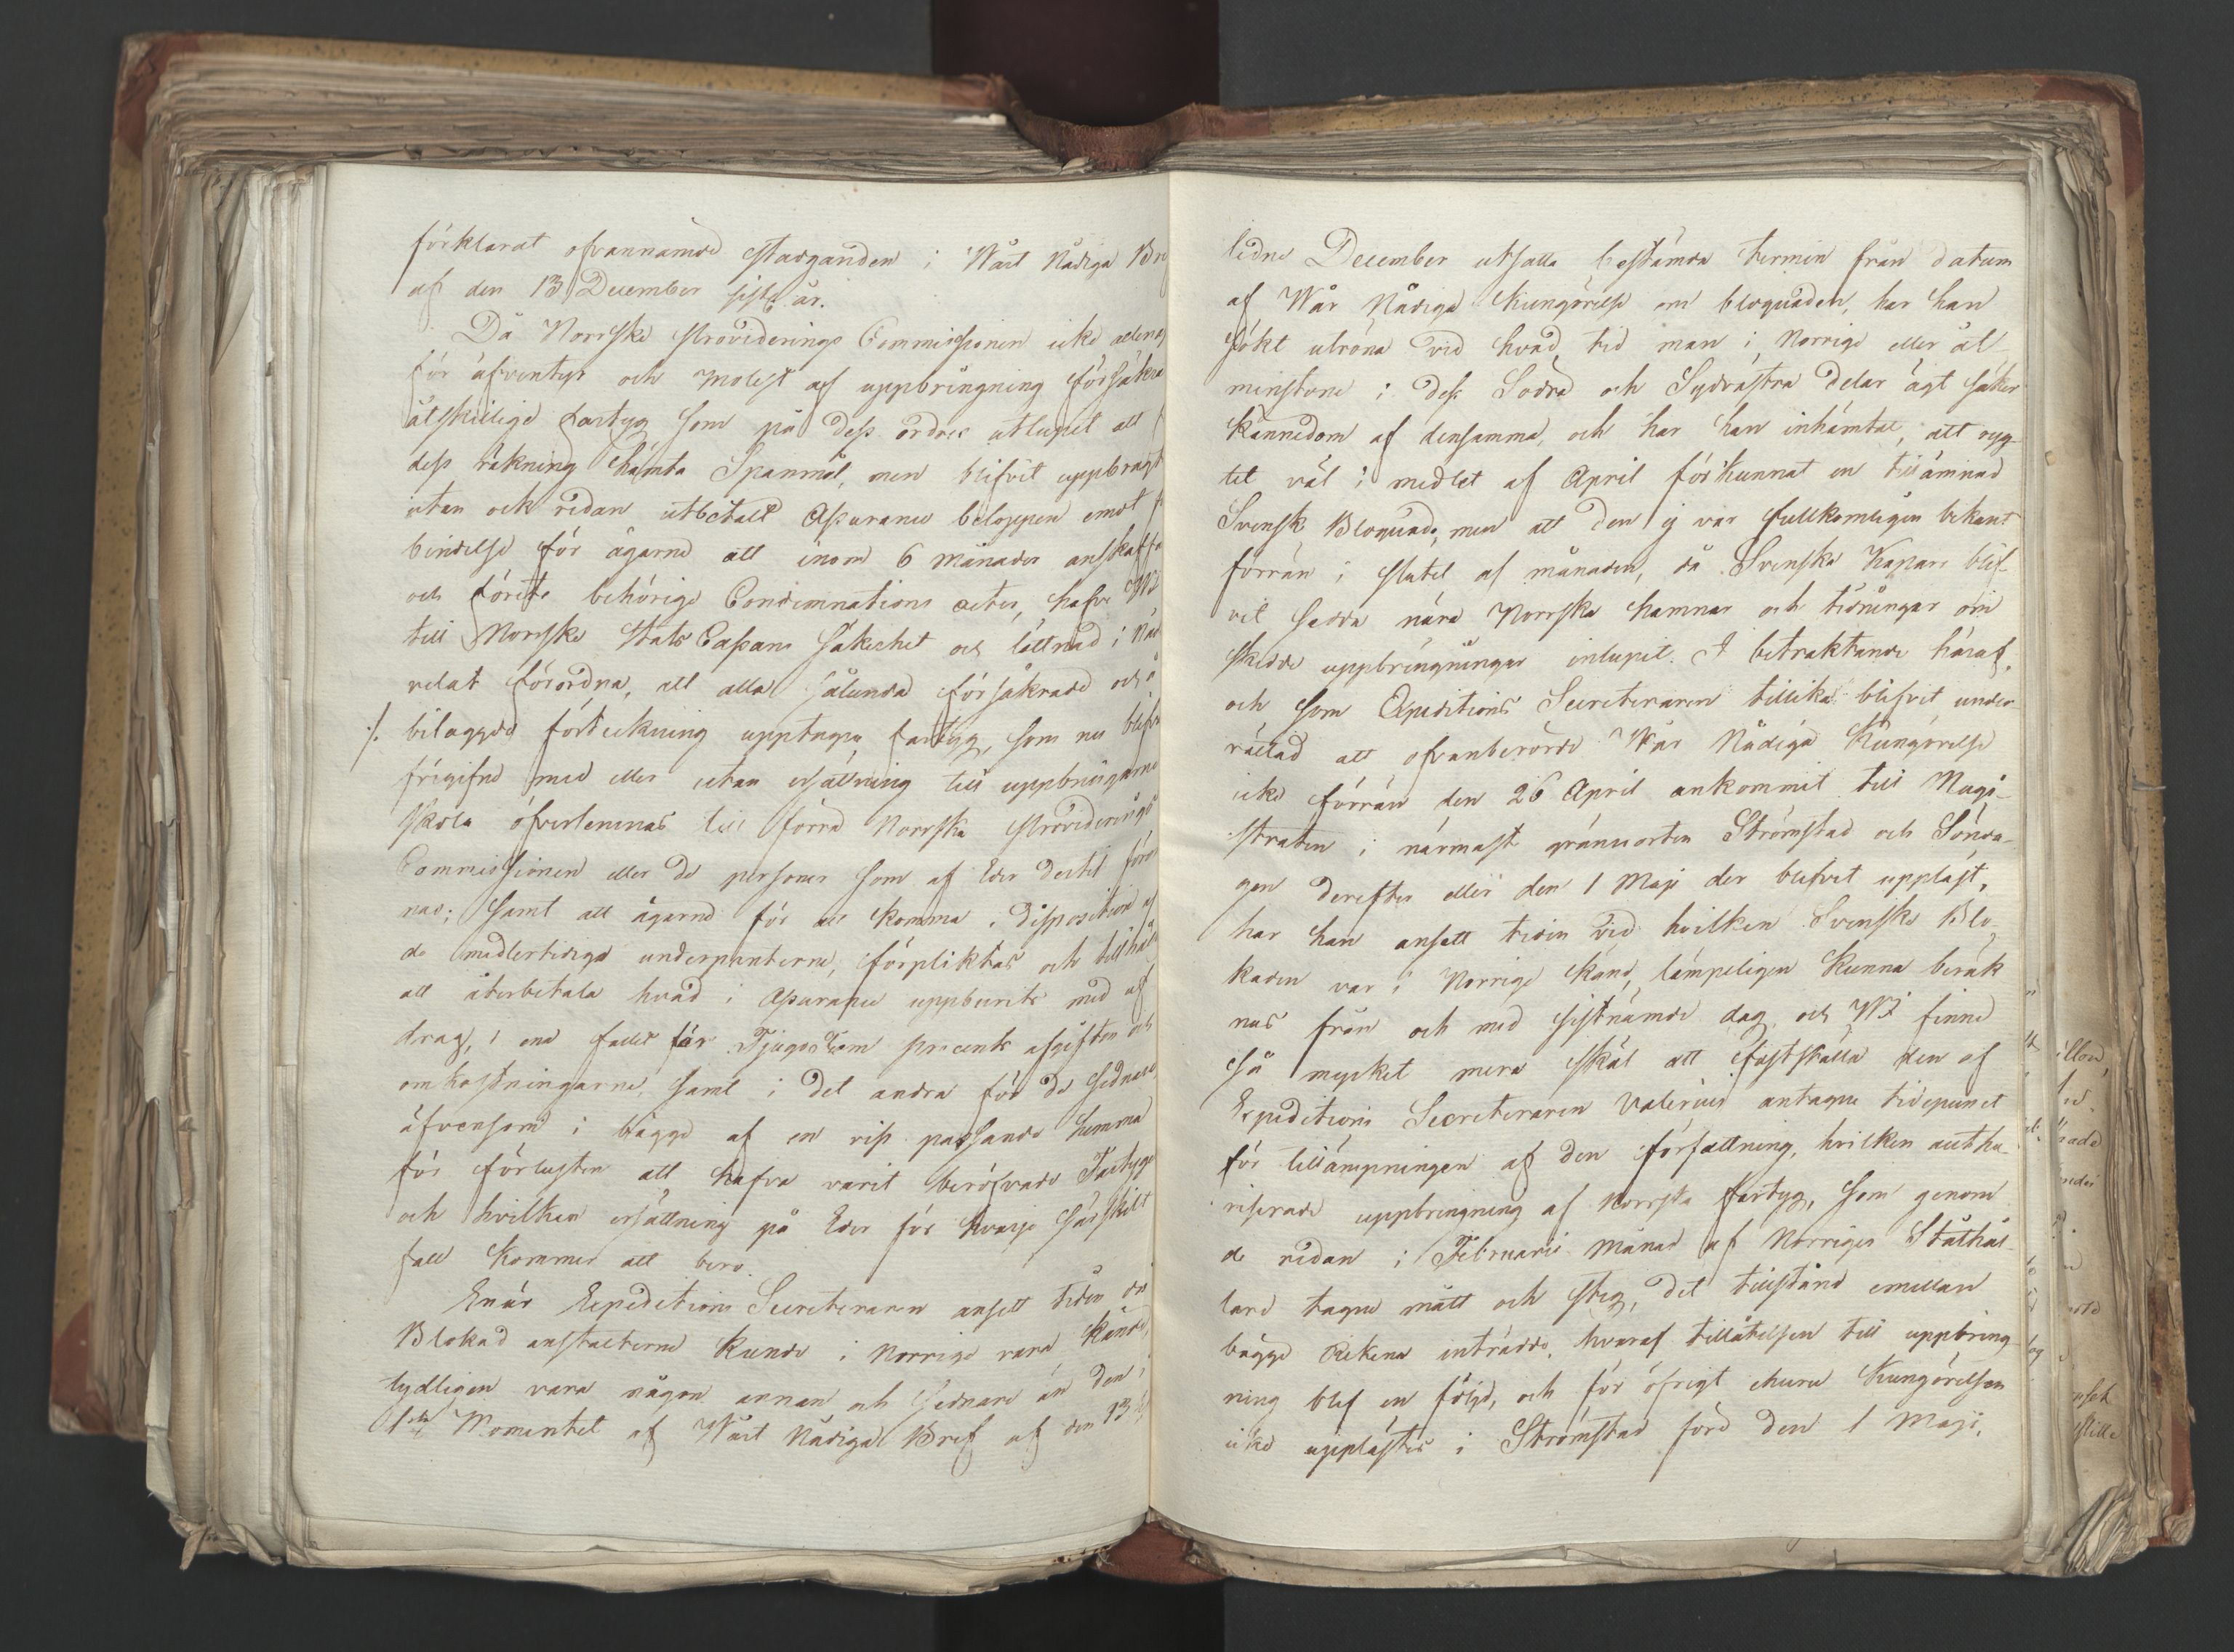 förklarat ofvannämde stadganden i Wårt Nådiga Bref
af den 13 December sistl. år.
Då Norrska Provideringo Commissionen icke allenas
för äfventyr och molest af uppbringning försäkra
åtskillige fartyg som på dess ordres utlupit att
dess räkning hämta Spanmål, men blifvit uppbragt
utan ock redan utbetalt Assurance beloppen emot
bindelse för ägarne att inom 6 månader anskaffa
och förete behörige Condemnations acter, hafve Wi
till Norrske Stats Cassans säkerhet och lättnad i Nåd
velat förordna, att alla sålunda försäkrade och i
./. bilaggde förteckning upptagne fartyg, som nu blifva
frigifne med eller utan ersättning till uppbringarne
skola öfverlemnas till förra Norrska Provideringo
Commissionen eller de personer som af Eder dertil föror
nas; samt att ägarne för att komma i disposition af
de medlertidiga underpanterne, förpliktas och tillhåll
att återbetala hvad i Assurance uppburits med af
drag, i ena fallet för Tjugofem procents afgiften och
omkostningarne, samt i det andra för de sednare,
äfvensom i bägge af en viss passande summa
för förlusten att hafva varit beröfvade Fartyge
och hvilken ersättning på Eder för hvarje särskilt
fall kommer att bero.
Enär Expeditions Secreteraren ansett tiden då
Blokad anstalterne kunde i Norrige vara kände,
tydligen vara någon annan och sednare än den i
1sta Momentet af Wårt Nådiga Bref af den 13
lidne December utsatta bestämda termin från datum
af Wår Nådiga Kungörelse om bloquaden, har han
sökt utröna vid hvad tid man i Norrige eller åt-
minstone i dess Södra och Sydvästra delar ägt säker
kännedom af densamma, och har han inhämtat, att ryg-
tet väl i medlet af April förkunnat en tillämnad
Svensk Bloquade, men att den ej var fullkomligen bekant
förrän i slutet af månaden, då Svenska Kapare blif-
vit sedda nära Norrska hamnar och tidningar om
skedde uppbringningar inlupit. I betraktande häraf,
och som Expeditions Secreteraren tillika blifvit under
rättad att ofvanberörde Wår Nådiga Kungörelse
icke förrän den 26 April ankommit till Magi-
straten i närmast gränsorten Strömstad och Sönda-
gen derefter eller den 1 Maji der blifvit uppläst,
har han ansett tiden vid hvilken Svenske Blo-
kaden var i Norrige känd, lämpeligen kunna beräk
nas från och med sistnämde dag, och Wi finne
så mycket mera skäl att fastställa den af
Expeditions Secreteraren Valerius antagne tidepunct
för tillämpningen af den författning, hvilken autho-
riserade uppbringning af Norrska fartyg, som genom
de redan i Februarii månad af Norriges Ståthål-
lare tagne mått och steg, det tillstånd emellan
bägge Rikena inträdde, hvaraf tillåtelsen till uppbring
ning blef en följd, och för öfrigt ehuru Kungörelsen
icke upplästes i Strömstad förr den 1 Maji,